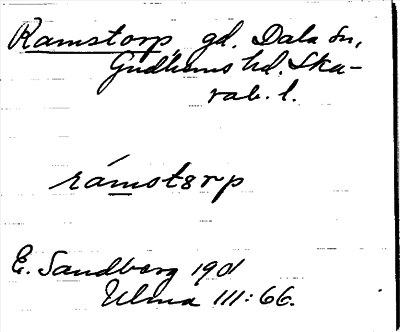 Ramstorp, gd. Dala sn,
Gudhems hd. Ska-
rab. l.
rámstɜrp
E. Sandberg 1901
Ulma 111:66.